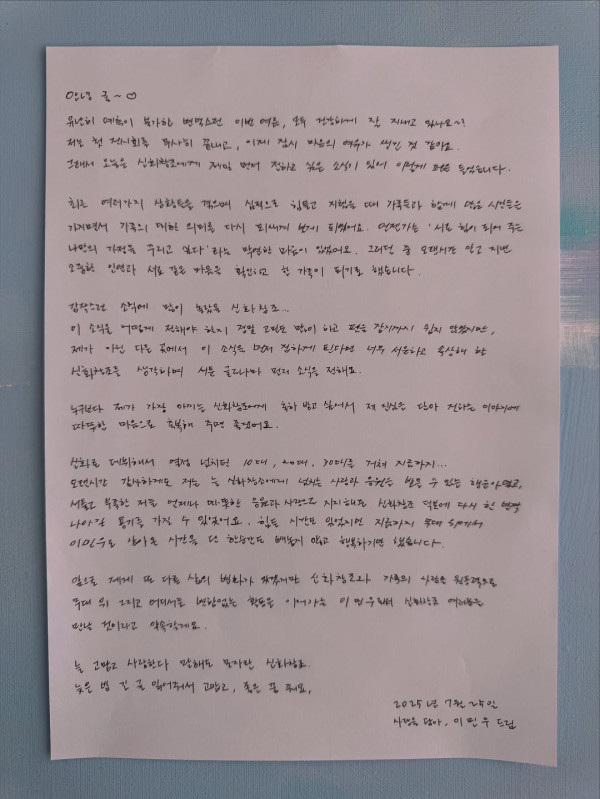 안녕 귤~♡
유난히 예측이 불가한 변덕스런 이번 여름, 모두 건강하게 잘 지내고 있나요~?
저는 첫 전시회를 무사히 끝내고, 이제 잠시 마음의 여유가 생긴 것 같아요.
그래서 오늘은 신화창조에게 제일 먼저 전하고 싶은 소식이 있어 이렇게 펜을 들었습니다.
최근 여러가지 상황들을 겪으며 심적으로 힘들고 지쳤을 때 가족들과 함께 많은 시간들을
가지면서 가족의 대한 의미를 다시 되새기게 되었어요. 언젠가는 '서로 힘이 되어 주는
나만의 가정을 꾸리고 싶다'라는 막연한 마음이 있었어요. 그러던 중 오랜시간 알고 지낸
소중한 인연과 서로 같은 마음을 확인하고 한 가족이 되기로 했습니다.
갑작스런 소식에 많이 놀랐을 신화창조...
이 소식을 어떻게 전해야 하지 정말 고민도 많이 하고 펜을 잡기까지 쉽지 않았지만,
제가 아닌 다른 곳에서 이 소식을 먼저 전하게 된다면 너무 서운하고 속상해 할
신화창조를 생각하며 서툰 글로나마 먼저 소식을 전해요.
누구보다 제가 가장 아끼는 신화창조에게 축하 받고 싶어서 제 진심을 담아 전하는 이야기에
따뜻한 마음으로 축복해 주면 좋겠어요.
신화로 데뷔해서 열정 넘치던 10대, 20대, 30대를 거쳐 지금까지...
오랜시간 감사하게도 저는 늘 신화창조에게 넘치는 사랑과 응원을 받을 수 있는 행운아였고,
서툴고 부족한 저를 언제나 따뜻한 응원과 사랑으로 지지해준 신화창조 덕분에 다시 한 번
나아갈 용기를 가질 수 있었어요. 힘든 시간도 있었지만 지금까지 무대 위에서
이민우로 살아온 시간을 단 한순간도 빼놓지 않고 행복하기만 했습니다.
앞으로 제게 또 다른 삶의 변화가 있겠지만 신화창조와 가족의 사랑을 원동력으로
무대 위 그리고 어디서든 변함없는 활동을 이어가는 이민우로 신화창조 여러분을
만날 것이라고 약속할게요.
늘 고맙고 사랑한다 말해도 모자란 신화창조.
늦은 밤 긴 글 읽어줘서 고맙고, 좋은 꿈 꿔요.
2025년 7월 25일
사랑을 담아, 이민우 드림